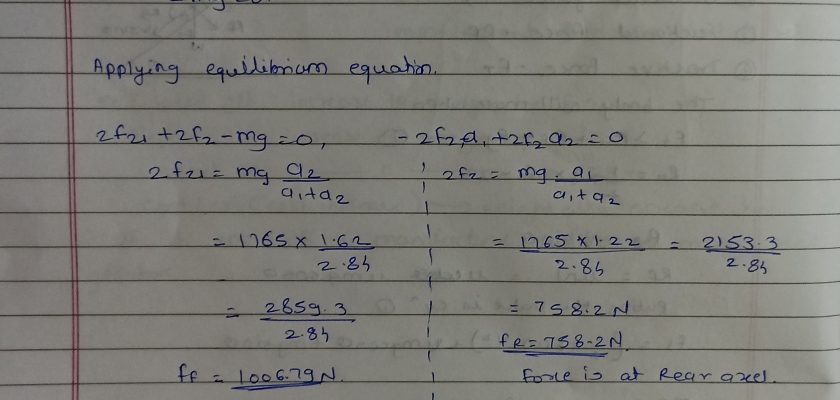 Applying equilibrium equation.
2fz1 + 2fz - mg = 0, - 2fz1a1 + 2fz a2 = 0
2fz1 = mg a2/a1+a2 2fz = mg . a1/a1+a2
= 1765 × 1.62/2.84 = 1765 × 1.22/2.84 = 2153.3/2.84
= 2859.3/2.84 = 758.2 N
fR = 758.2 N.
ff = 1006.79 N. Force is at Rear axel.